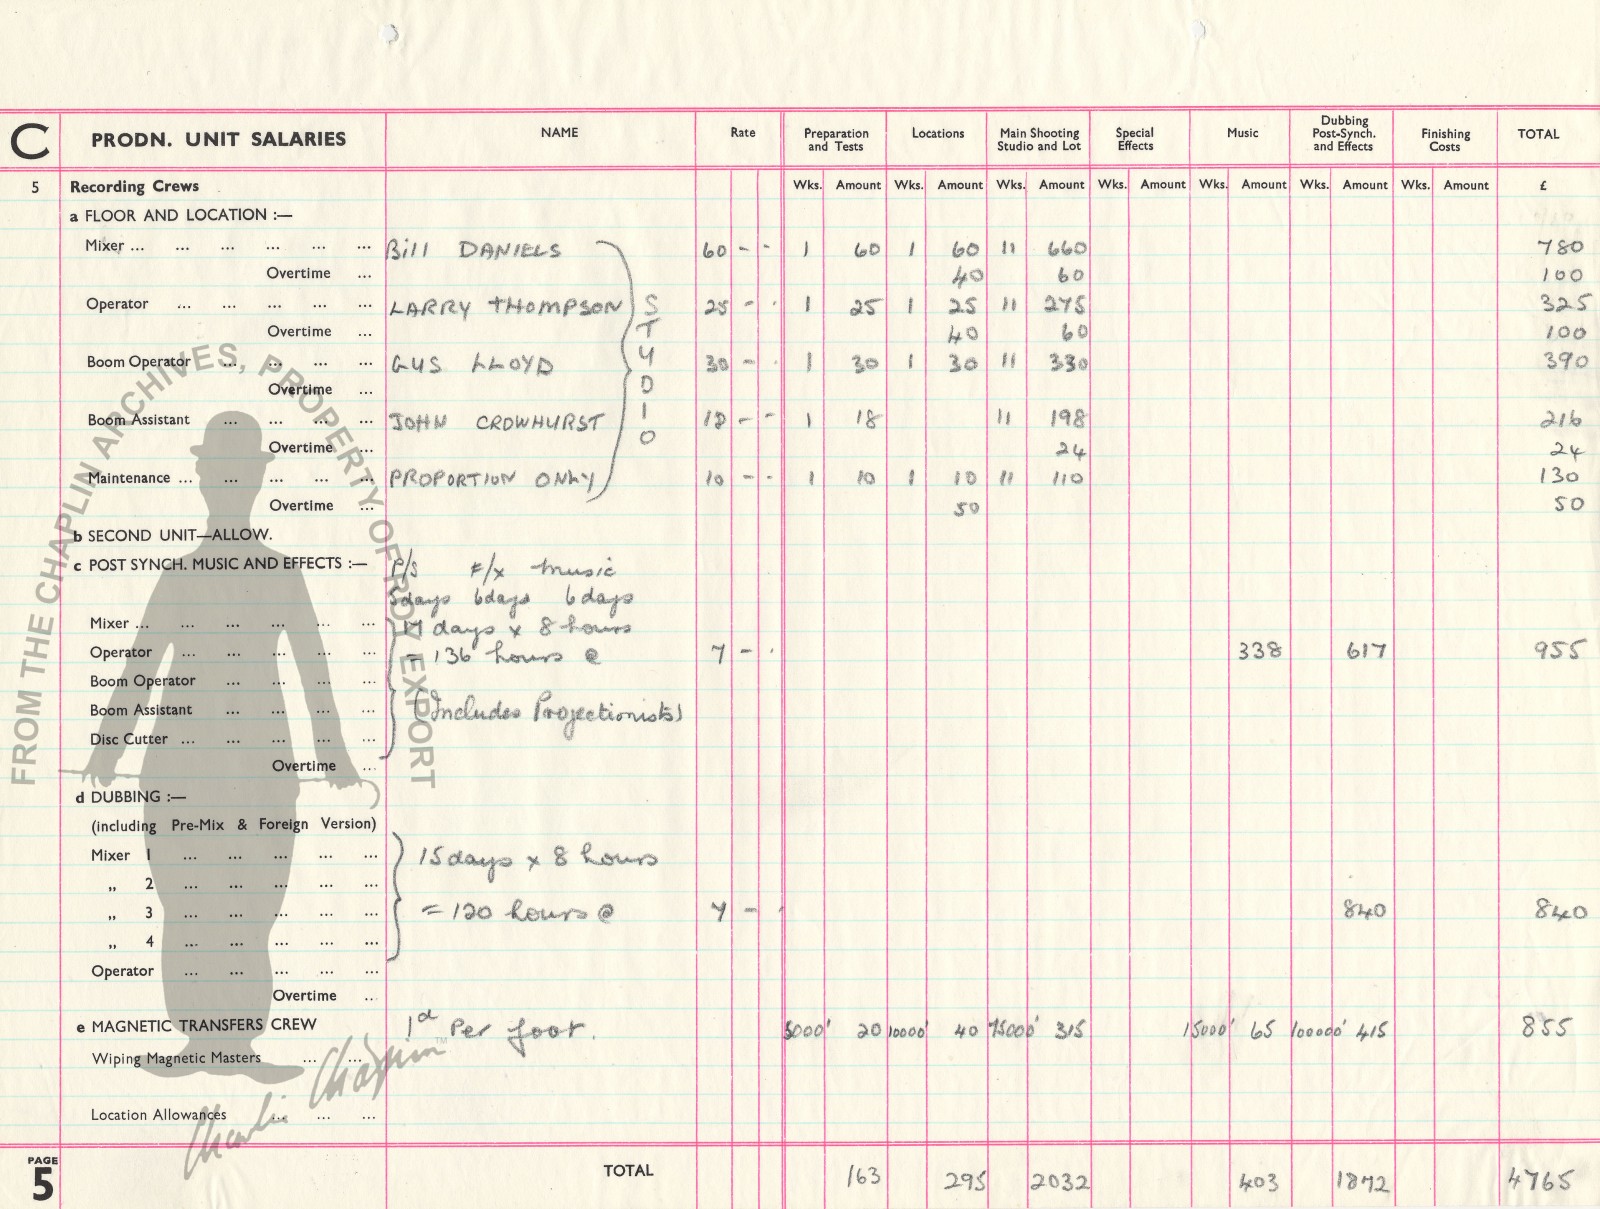 C PRODN. UNIT SALARIES NAME Rate Preparation and Tests Locations Main Shooting Studio and Lot Special Effects Music Dubbing Post-Synch. and Effects Finishing Costs TOTAL
5 Recording Crews Wks. Amount Wks. Amount Wks. Amount Wks. Amount Wks. Amount Wks. Amount Wks. Amount £
a FLOOR AND LOCATION :—
Mixer ... ... ... ... ... ... Bill DANIELS 60 - - 1 60 1 60 11 660 780
Overtime ... 40 60 100
Operator ... ... ... ... ... LARRY THOMPSON 25 - - 1 25 1 25 11 275 325
Overtime ... 40 60 100
Boom Operator ... ... ... ... GUS LLOYD 30 - - 1 30 1 30 11 330 390
Overtime ...
Boom Assistant ... ... ... ... JOHN CROWHURST 18 - - 1 18 11 198 216
Overtime ... 24 24
Maintenance ... ... ... ... ... PROPORTION ONLY 10 - - 1 10 1 10 11 110 130
STUDIO
Overtime ... 50 50
b SECOND UNIT—ALLOW.
c POST SYNCH. MUSIC AND EFFECTS :— P/S F/X music
5days 6days 6days
Mixer ... ... ... ... ... ... 17 days x 8 hours
Operator ... ... ... ... ... = 136 hours @ 7 - - 338 617 955
Boom Operator ... ... ... ...
Boom Assistant ... ... ... ... (Includes Projectionists)
Disc Cutter ... ... ... ... ...
Overtime ...
d DUBBING :—
(including Pre-Mix & Foreign Version)
Mixer 1 ... ... ... ... ... 15 days x 8 hours
„ 2 ... ... ... ... ...
„ 3 ... ... ... ... ... = 120 hours @ 7 - - 840 840
„ 4 ... ... ... ... ...
Operator ... ... ... ... ...
Overtime ...
e MAGNETIC TRANSFERS CREW 1d Per foot. 5000' 20 10000' 40 75000' 315 15000' 65 100000' 415 855
Wiping Magnetic Masters ... ... ...
Location Allowances ... ... ...
PAGE 5 TOTAL 163 295 2032 403 1872 4765
FROM THE CHAPLIN ARCHIVES, PROPERTY OF ROY EXPORT
Charlie Chaplin™